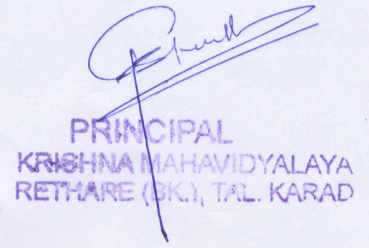 PRINCIPAL
KRISHNA MAHAVIDYALAYA
RETHARE (BK.), TAL. KARAD